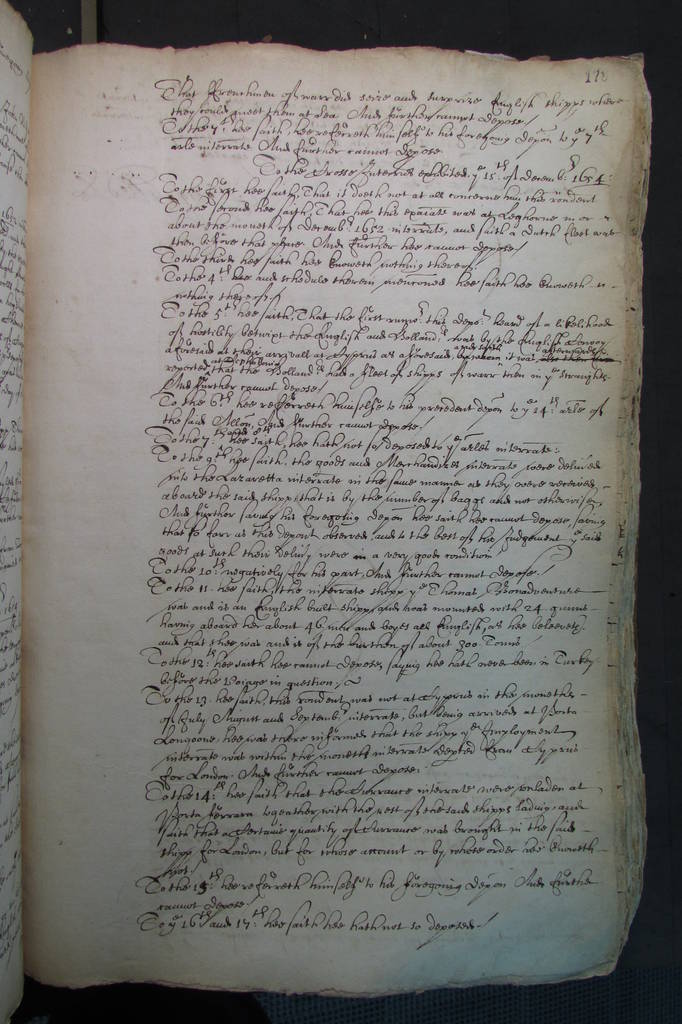 172
That Frenchmen of warr did seize and surprize English shipps where
they could meet them at Sea And further cannot depose./
To the 7th. hee saith, hee referreth himselfe to his foregoing depon to ye 7th
arle interrate And further cannot depose
To the Crosse Interries exhibited ye 15th of decembr. 1654:
To the first hee saith, That it doeth not at all concerne him this rondent
To the second hee saith, That hee this examinate was at Leghorne in or
about the moneth of Decembr. 1652 interrate, and saith a dutch fleet was
then before that place. And further hee cannot depose./
To the third hee saith hee knoweth nothing thereof.
To the 4th. hee and schedule therein mencioned hee saith hee knoweth
nothing thereof./
To the 5th. hee saith, That the first rumor this depot heard of a likelihood
of hostility betwixt the English and Holland was by the English Convoy
aforesaid at their arrivall at Cyprus as aforesaid, and saith it was
reported at that the Hollandrs had a fleet of shipps of warr then in ye Straights
And further cannot depose./
To the 6th. hee referreth himselfe to his precedent depon to ye 14th: arle of
the said Allon, And further cannot depose./
To the 7th and 8th hee saith, hee hath not so deposed to ye arles interrate:
To the 9th hee saith, the goods and Merchandizes interrate were deliverd
into the Lazaretta interrate in the same manner as they were received
aboard the said shipp, that is by the number of baggs and not otherwise,
And further saving his foregoing depon hee saith hee cannot depose, saving
that so farr as this deponent observed, and to the best of his Judgement ye said
goods at such their delivery were in a very good condition
To the 10th negatively for his part, And further cannot depose./
To the 11. hee saith, the interrate shipp ye Thomas Bonadventure
was and is an English built shipp, and was mounted with 24 gunns
having aboard her about 46 men and boyes all English as hee beleeveth,
and that shee was and is of the burthen of about 300 Tonns
To the 12th. hee saith hee cannot depose, saying hee hath never been in Turkey
before the Voiage in question./
To the 13. hee saith, this rondent was not at Cyprus in the moneths
of July August and Septembr. interrate, but being arrived at Porta
Longone hee was there informed that the shipp ye Employment
interrate was within the moneths interrate departed from Cyprus
for London. And further cannot depose.
To the 14th. hee saith that the Currance interrate were onladen at
Porta ferrara together with the rest of the said shipps lading, and
saith that a Certaine quantity of Currance was brought in the said
shipp for London, but for whose accunt or by whose order hee knoweth
not./
To the 15th. hee referreth himselfe to his foregoing depon And further
cannot depose./
To ye 16th and 17th. hee saith hee hath not so deposed./